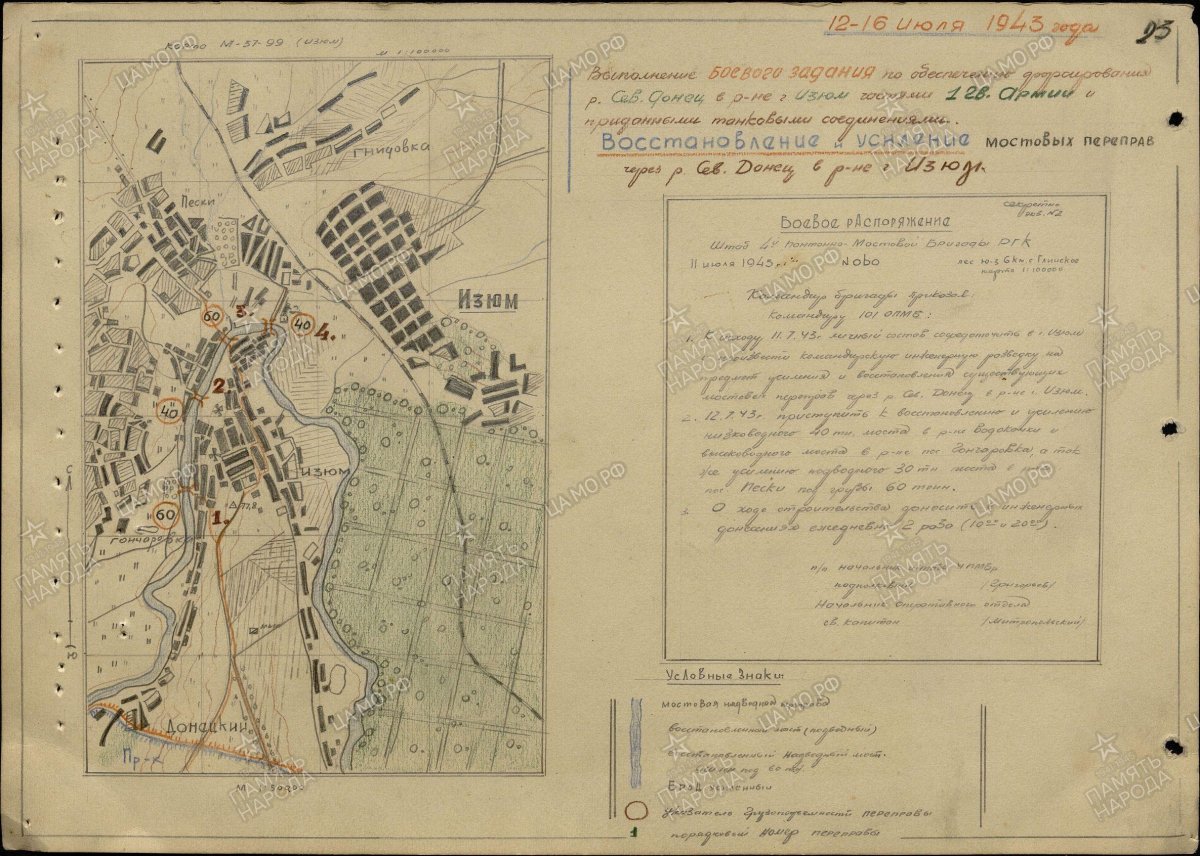 12-16 июля 1943 года
23
М-37-99 (Изюм)
М 1:100000
Выполнение боевого задания по обеспечению форсирования
р. Сев. Донец в р-не г. Изюм частями 1 Гв. Армии и
приданными танковыми соединениями.
Восстановление и усиление мостовых переправ
через р. Сев. Донец в р-не г. Изюм.
Гнидовка
Пески
Изюм
60
3.
40
4.
2.
40
Изюм
60
1.
77,8
Гончаровка
Донецкий
Пр-к
секретно
Боевое распоряжение
Штаб 4й Понтонно-Мостовой Бригады РГК
11 июля 1943 г. №060 лес ю-з 6 км. с Глинское
карта 1:100000
Командир бригады приказал:
Командиру 101 ОПМБ:
1. К исходу 11.7.43г личный состав сосредоточить в г. Изюм
произвести командирскую инженерную разведку на
предмет усиления и восстановления существующих
мостовых переправ через р. Сев. Донец в р-не г. Изюм.
2. 12.7.43г приступить к восстановлению и усилению
низководного 40 тн. моста в р-не водокачки и
высоководного моста в р-не пос. Гончаровка, а так
же усилению подводного 30 тн моста в
пос. Пески под грузы 60 тонн.
3. О ходе строительства доносить в инженерных
донесениях ежедневно 2 раза (10⁰⁰ и 20⁰⁰).
п/п начальник штаба 4 ПМБр
подполковник (Григорьев)
Начальник оперативного отдела
гв. капитан (Митропольский)
Условные знаки
мостовая
восстановленный мост (подводный)
восстановленный надводный мост.
под 60 тн.
Брод усиленный
указатель грузоподъемности переправы
1 порядковый номер переправы
ПАМЯТЬ НАРОДА
ЦАМО.РФ